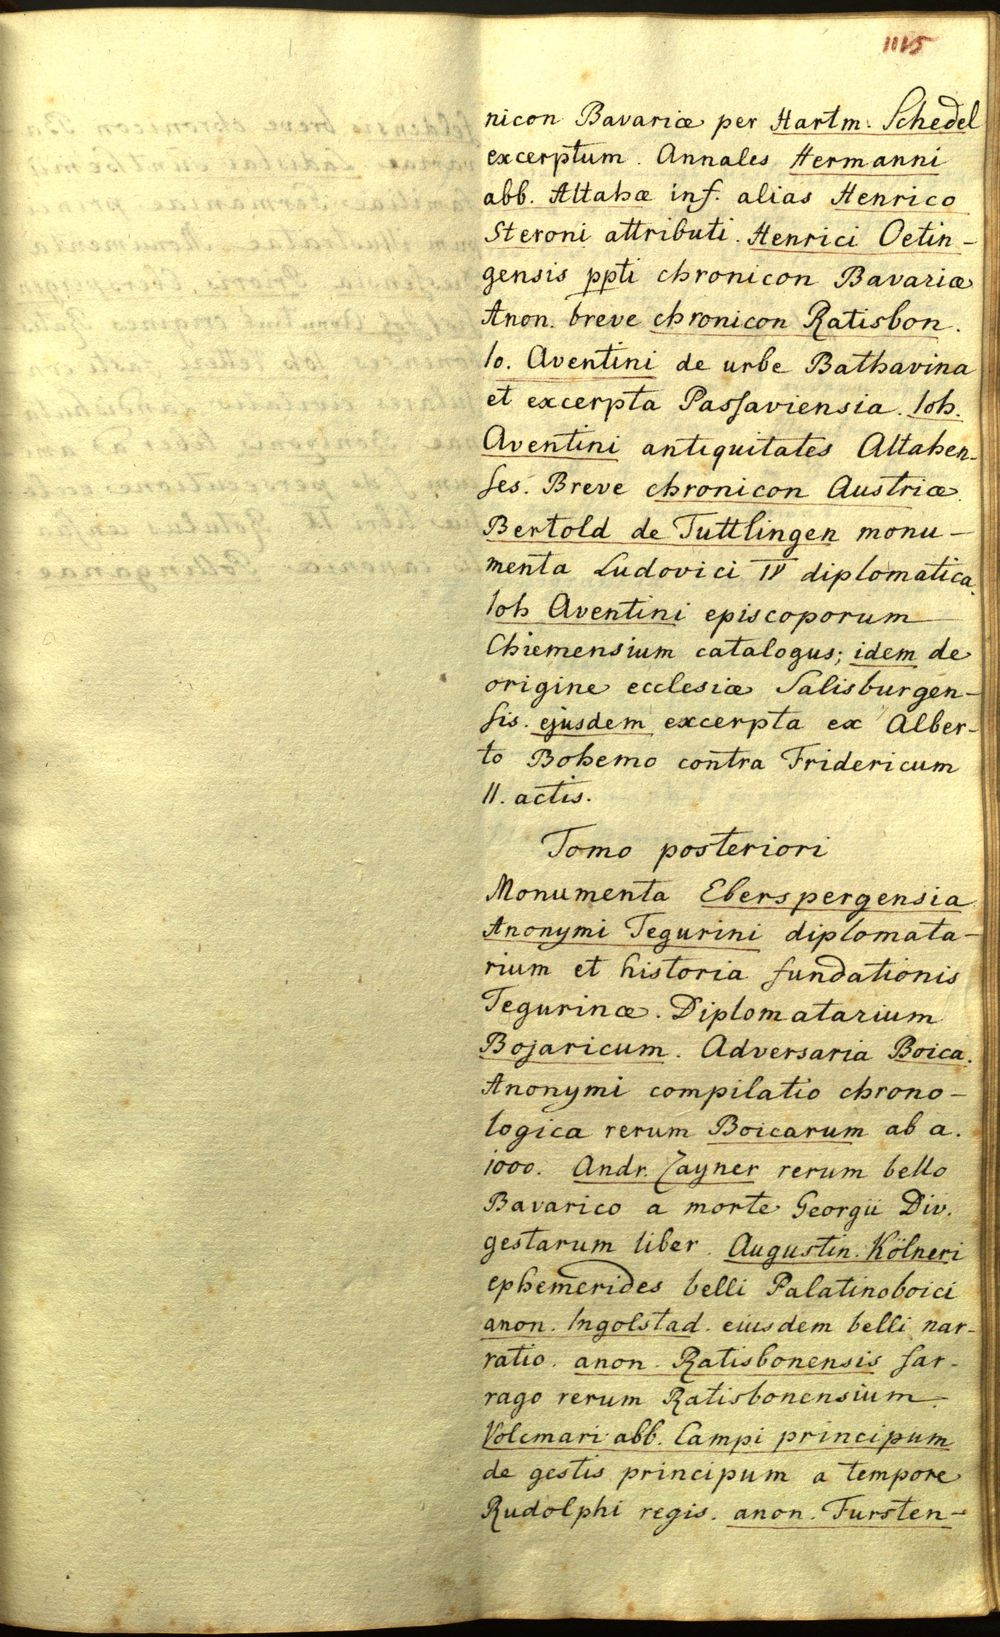 1115
nicon Bavariæ per Hartm. Schedel
excerptum. Annales Hermanni
abb. Altahæ inf. alias Henrico
Steroni attributi. Henrici Oetin-
gensis ppti chronicon Bavariæ
Anon. breve chronicon Ratisbon.
Io. Aventini de urbe Bathavina
et excerpta Passaviensia. Ioh.
Aventini antiquitates Altahen-
ses. Breve chronicon Austriæ.
Bertold de Tuttlingen monu-
menta Ludovici IV diplomatica.
Ioh Aventini episcoporum
Chiemensium catalogus; idem de
origine ecclesiæ Salisburgen-
sis. ejusdem excerpta ex Alber-
to Bohemo contra Fridericum
II. actis.
Tomo posteriori
Monumenta Eberspergensia
Anonymi Tegurini diplomata-
rium et historia fundationis
Tegurinæ. Diplomatarium
Bojaricum. Adversaria Boica.
Anonymi compilatio chrono-
logica rerum Boicarum ab a.
1000. Andr. Zayner rerum bello
Bavarico a morte Georgii Div.
gestarum liber. Augustin. Kölneri
ephemerides belli Palatinoboici
anon. Ingolstad. eiusdem belli nar-
ratio. anon. Ratisbonensis far-
rago rerum Ratisbonensium.
Volcmari abb. Campi principum
de gestis principum a tempore
Rudolphi regis. anon. Fursten-